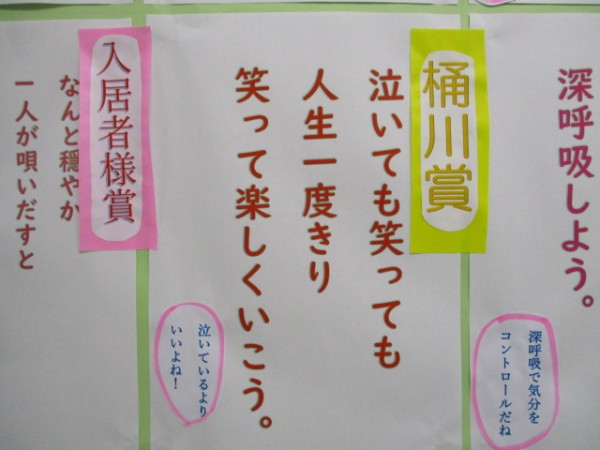 深呼吸しよう。
深呼吸で気分を
コントロールだね
桶川賞
泣いても笑っても
人生一度きり
笑って楽しくいこう。
泣いているより
いいよね！
入居者様賞
なんと穏やか
一人が唄いだすと